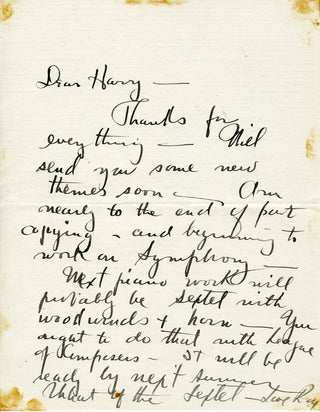 Dear Harry —
Thanks for
everything — Will
send you some new
themes soon — Am
nearly to the end of part
copying - and beginning to
work on Symphony —
Next piano work will
probably be Septet with
woodwinds + horn — You
ought to do that with League
of Composers — It will be
ready by next summer
What of the Septet —